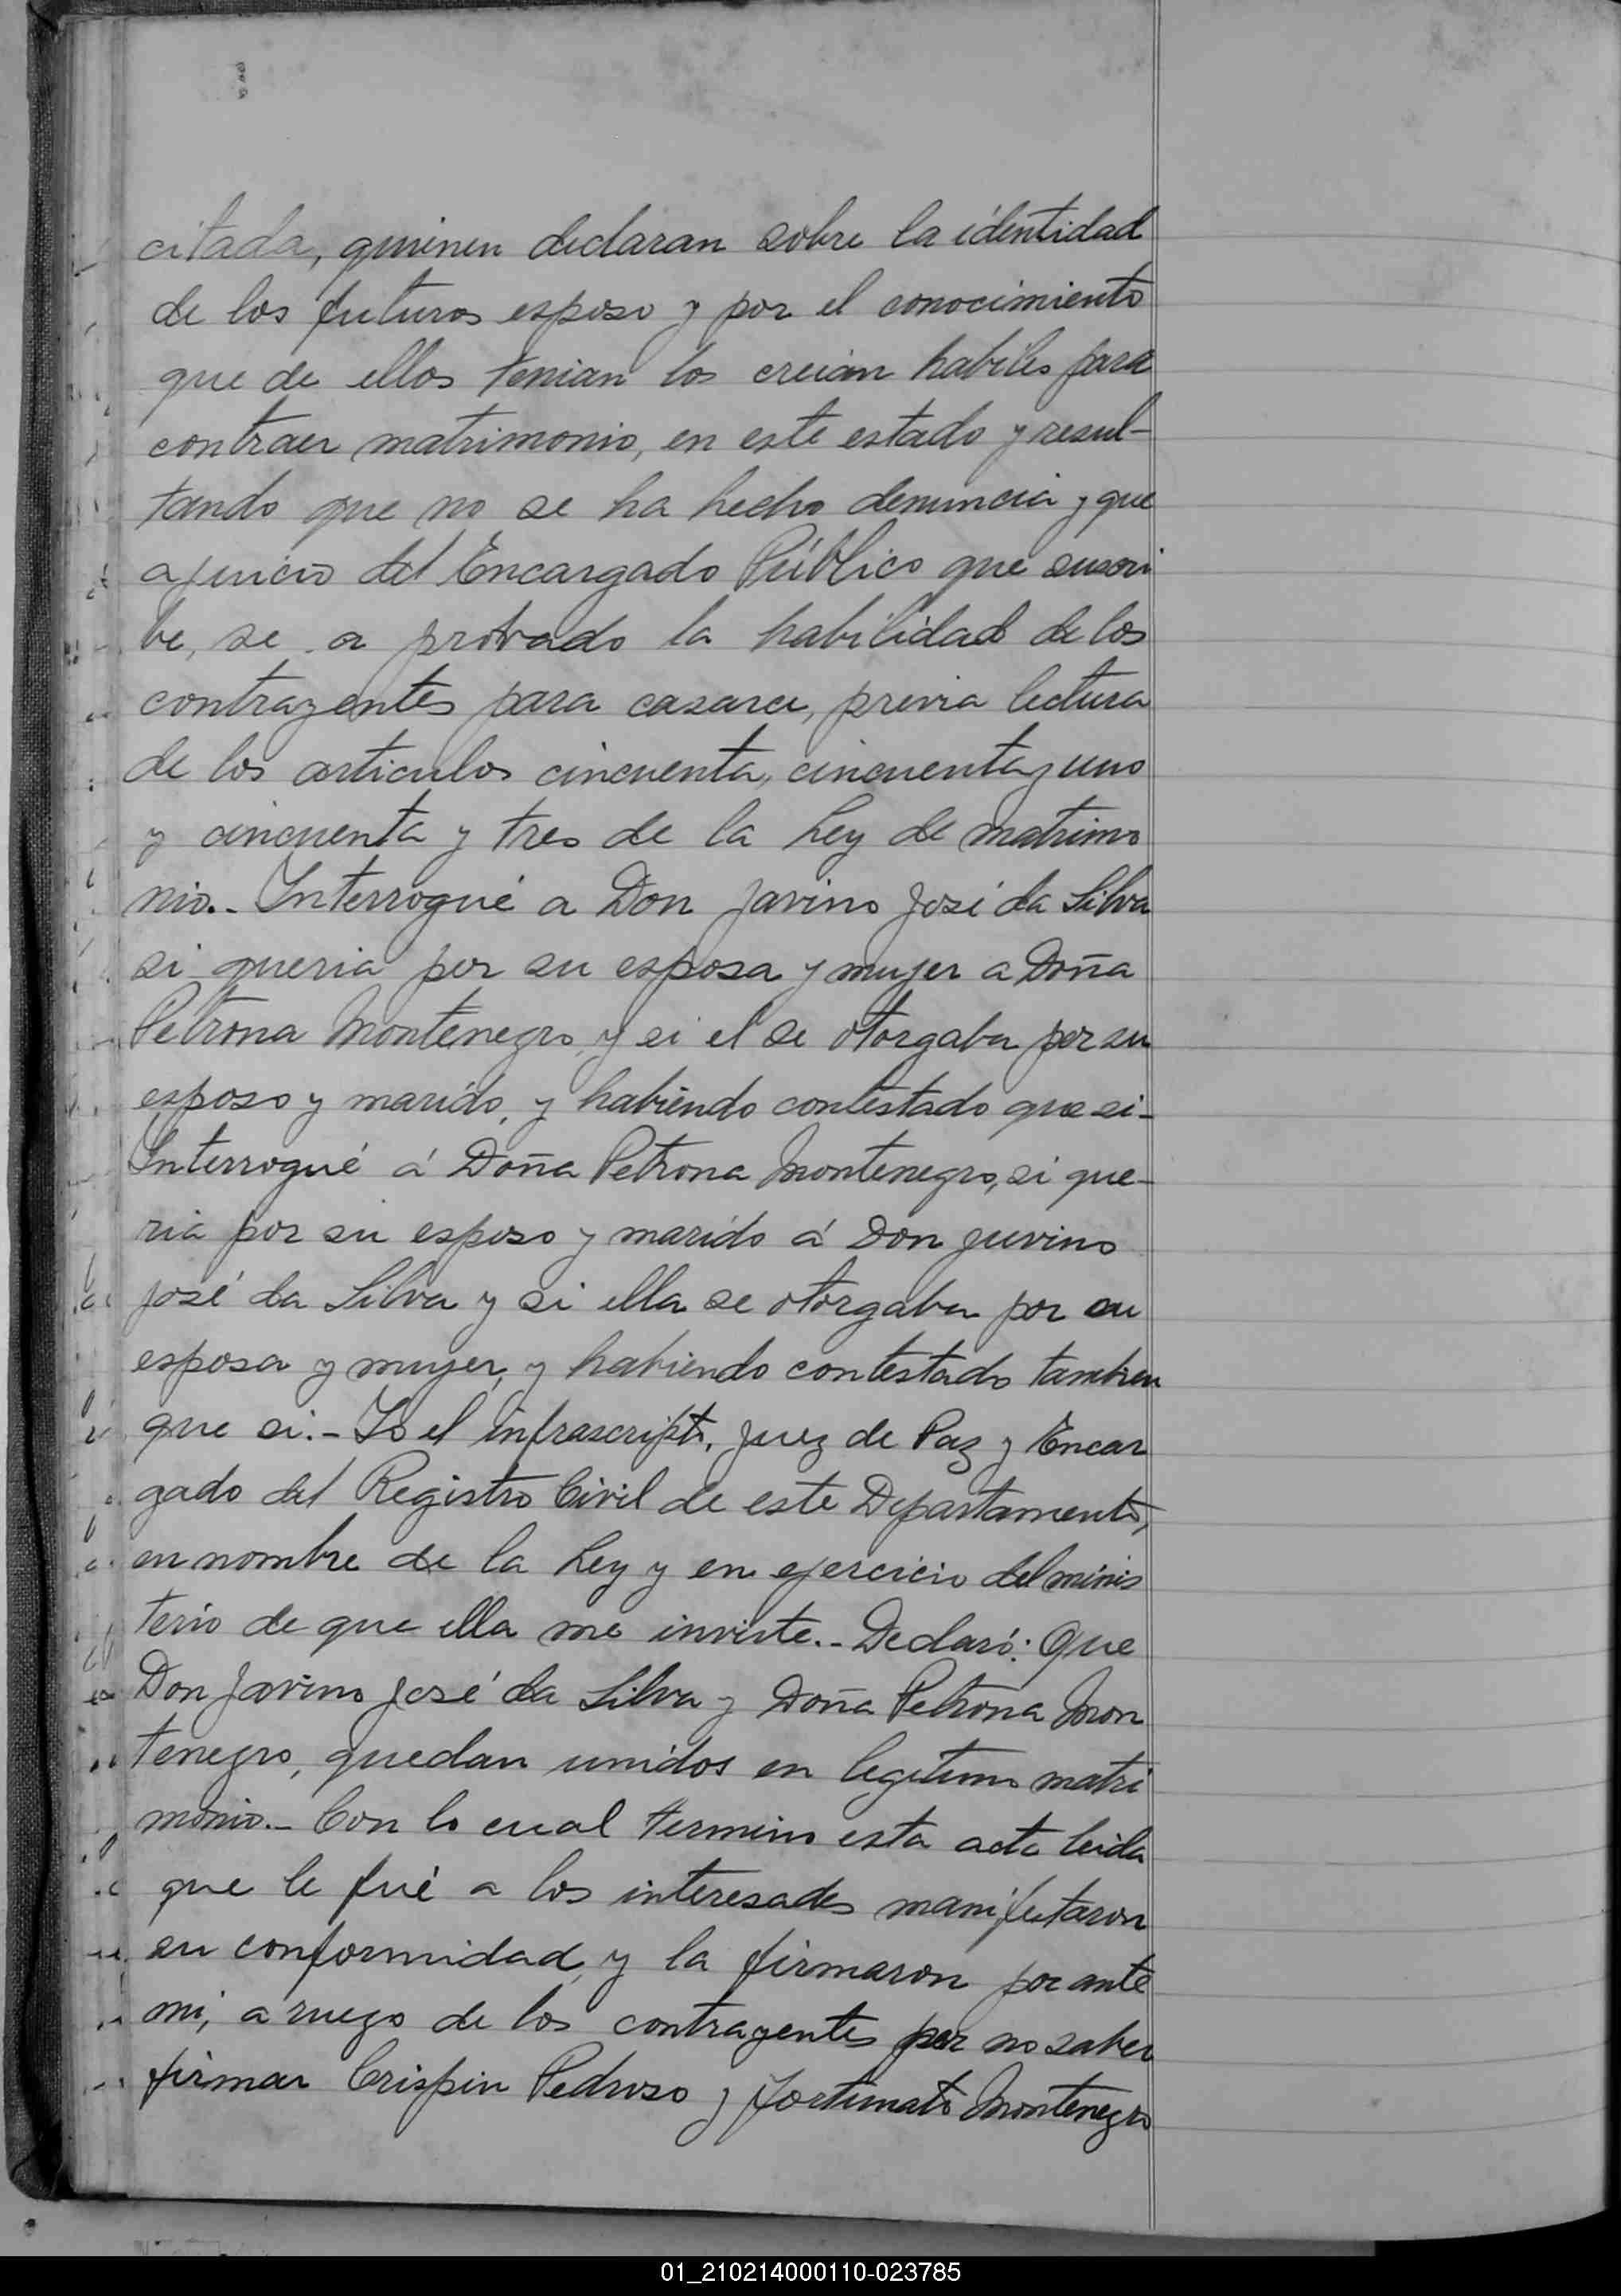 citada, quienen declaran sobre la identidad
de los futuros esposo y por el conocimiento
que de ellos tenian los creian habiles para
contraer matrimonio, en este estado y resul-
tando que no se ha hecho denuncia y que
a juicio del Encargado Público que suscri
be, se a probado la habilidad de los
contrayentes para casarce, previa lectura
de los articulos cincuenta, cincuenta y uno
y cincuenta y tres de la Ley de matrimo
nio.- Interrogué a Don Javino José da Silva
si queria por su esposa y mujer a Doña
Petrona Montenegro, y si el se otorgaba por su
esposo y marido, y habiendo contestado que si-
Interrogué á Doña Petrona Montenegro, si que-
ria por su esposo y marido á Don Juvino
José da Silva y si ella se otorgaba por su
esposa y mujer, y habiendo contestado tambien
que si.- Yo el infrascripto, Juez de Paz y Encar
gado del Registro Civil de este Departamento,
en nombre de la Ley y en ejercicio del minis
terio de que ella me inviste.- Declaró: Que
Don Javino José da Silva y Doña Petrona Mon
tenegro, quedan unidos en legitimo matri
monio.- Con lo cual termino esta acta leida
que le fué a los interesados manifestaron
su conformidad, y la firmaron por ante
mi, a ruego de los contrayentes por no saber
firmar Crispin Pedroso y Fortunato Montenegro
01_210214000110-023785